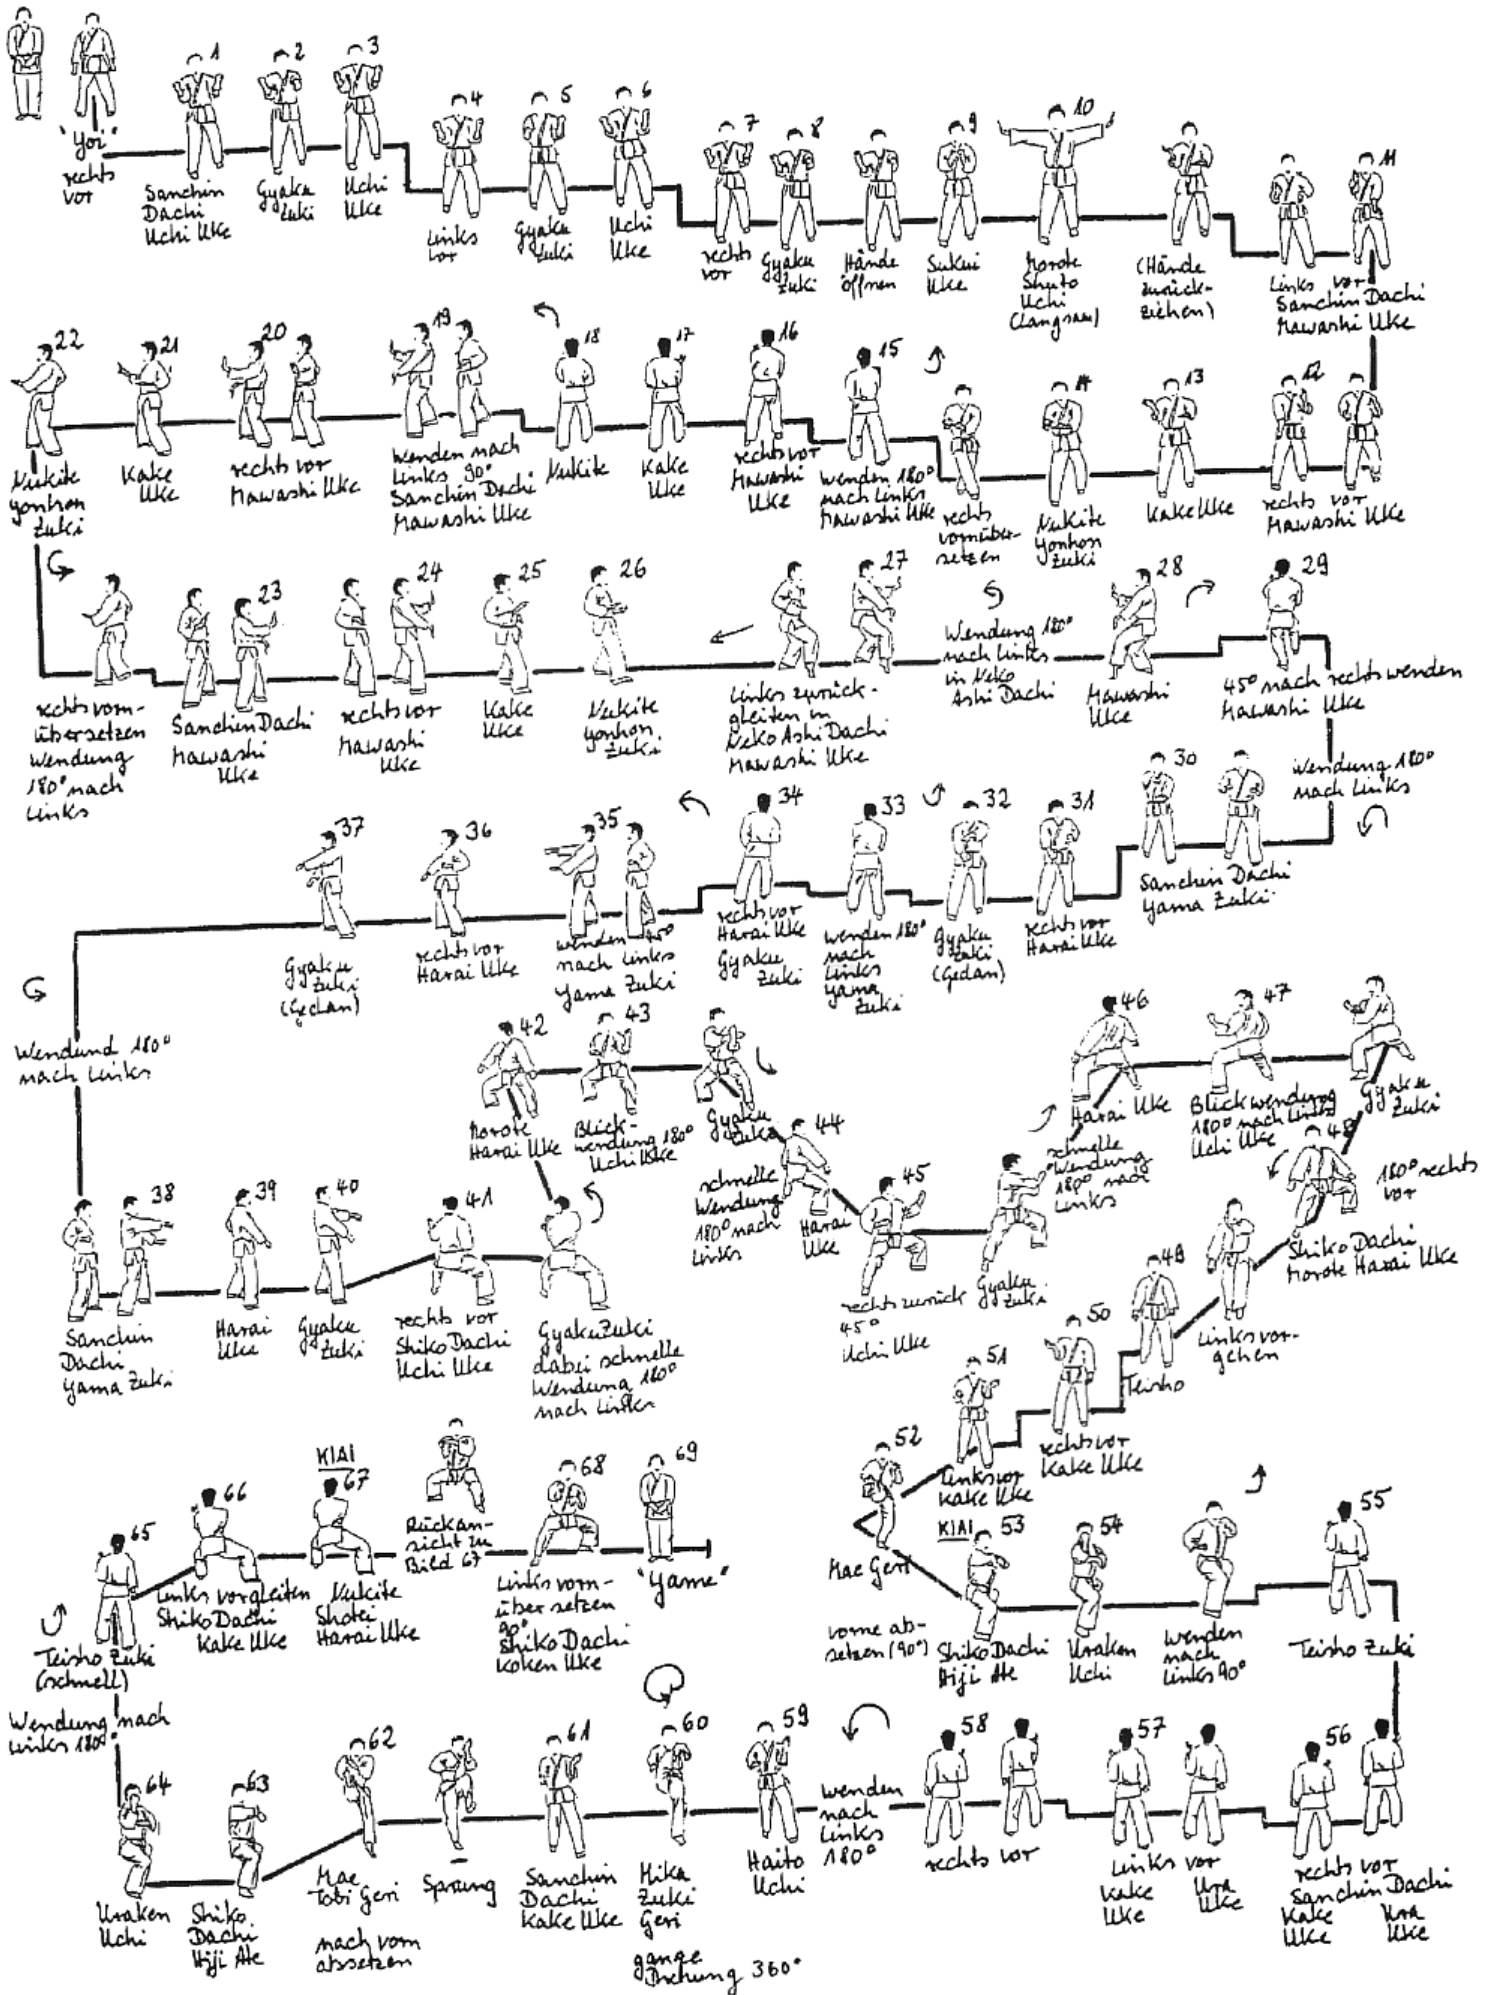 "Yoi"
rechts
vor
1
Sanchin
Dachi
Uchi Uke
2
Gyaku
Zuki
3
Uchi
Uke
4
Links
vor
5
Gyaku
Zuki
6
Uchi
Uke
7
rechts
vor
8
Gyaku
Zuki
Hände
öffnen
9
Sukui
Uke
10
Morote
Shuto
Uchi
(Langsam)
(Hände
zurück-
ziehen)
11
Links vor
Sanchin Dachi
Mawashi Uke
12
rechts vor
Mawashi Uke
13
Kake Uke
14
Nukite
Yonhon
Zuki
rechts
vornüber-
setzen
15
Wenden 180°
nach Links
Mawashi Uke
16
rechts vor
Mawashi
Uke
17
Kake
Uke
18
Nukite
19
Wenden nach
Links 90°
Sanchin Dachi
Mawashi Uke
20
rechts vor
Mawashi Uke
21
Kake
Uke
22
Nukite
Yonhon
Zuki
rechts vorn-
übersetzen
Wendung
180° nach
Links
23
Sanchin Dachi
Mawashi
Uke
24
rechts vor
Mawashi
Uke
25
Kake
Uke
26
Nukite
Yonhon
Zuki
27
Links zurück-
gleiten in
Neko Ashi Dachi
Mawashi Uke
Wendung 180°
nach Links
in Neko
Ashi Dachi
28
Mawashi
Uke
29
45° nach rechts wenden
Mawashi Uke
Wendung 180°
nach Links
30
Sanchin Dachi
Yama Zuki
31
rechts vor
Harai Uke
32
Gyaku
Zuki
(Gedan)
33
Wenden 180°
nach
Links
Yama
Zuki
34
rechts vor
Harai Uke
Gyaku
Zuki
35
wenden 45°
nach Links
Yama Zuki
36
rechts vor
Harai Uke
37
Gyaku
Zuki
(Gedan)
Wendund 180°
nach Links
38
Sanchin
Dachi
Yama Zuki
39
Harai
Uke
40
Gyaku
Zuki
41
rechts vor
Shiko Dachi
Uchi Uke
Gyaku Zuki
dabei schnelle
Wendung 180°
nach Links
42
Morote
Harai Uke
43
Blick-
wendung 180°
Uchi Uke
Gyaku
Zuki
schnelle
Wendung
180° nach
Links
44
Harai
Uke
45
rechts zurück
45°
Uchi Uke
Gyaku
Zuki
schnelle
Wendung
180° nach
Links
46
Harai Uke
47
Blickwendung
180° nach Links
Uchi Uke
Gyaku
Zuki
48
180° rechts
vor
Shiko Dachi
Morote Harai Uke
Links vor-
gehen
49
Teisho
50
rechts vor
Kake Uke
51
Links vor
Kake Uke
52
Mae Geri
vorne ab-
setzen (90°)
KIAI
53
Shiko Dachi
Hiji Ate
54
Uraken
Uchi
Wenden
nach
Links 90°
55
Teisho Zuki
56
rechts vor
Sanchin Dachi
Kake
Uke
Ura
Uke
57
Links vor
Kake
Uke
Ura
Uke
58
rechts vor
Wenden
nach
Links
180°
59
Haito
Uchi
60
Mika
Zuki
Geri
ganze
Drehung 360°
61
Sanchin
Dachi
Kake Uke
Sprung
62
Mae
Tobi Geri
nach vorn
absetzen
63
Shiko
Dachi
Hiji Ate
64
Uraken
Uchi
Wendung nach
Links 180°
65
Teisho Zuki
(schnell)
66
Links vorgleiten
Shiko Dachi
Kake Uke
KIAI
67
Nukite
Shotei
Harai Uke
Rückan-
sicht zu
Bild 67
68
Links vorn-
über setzen
90°
Shiko Dachi
Koken Uke
69
"Yame"